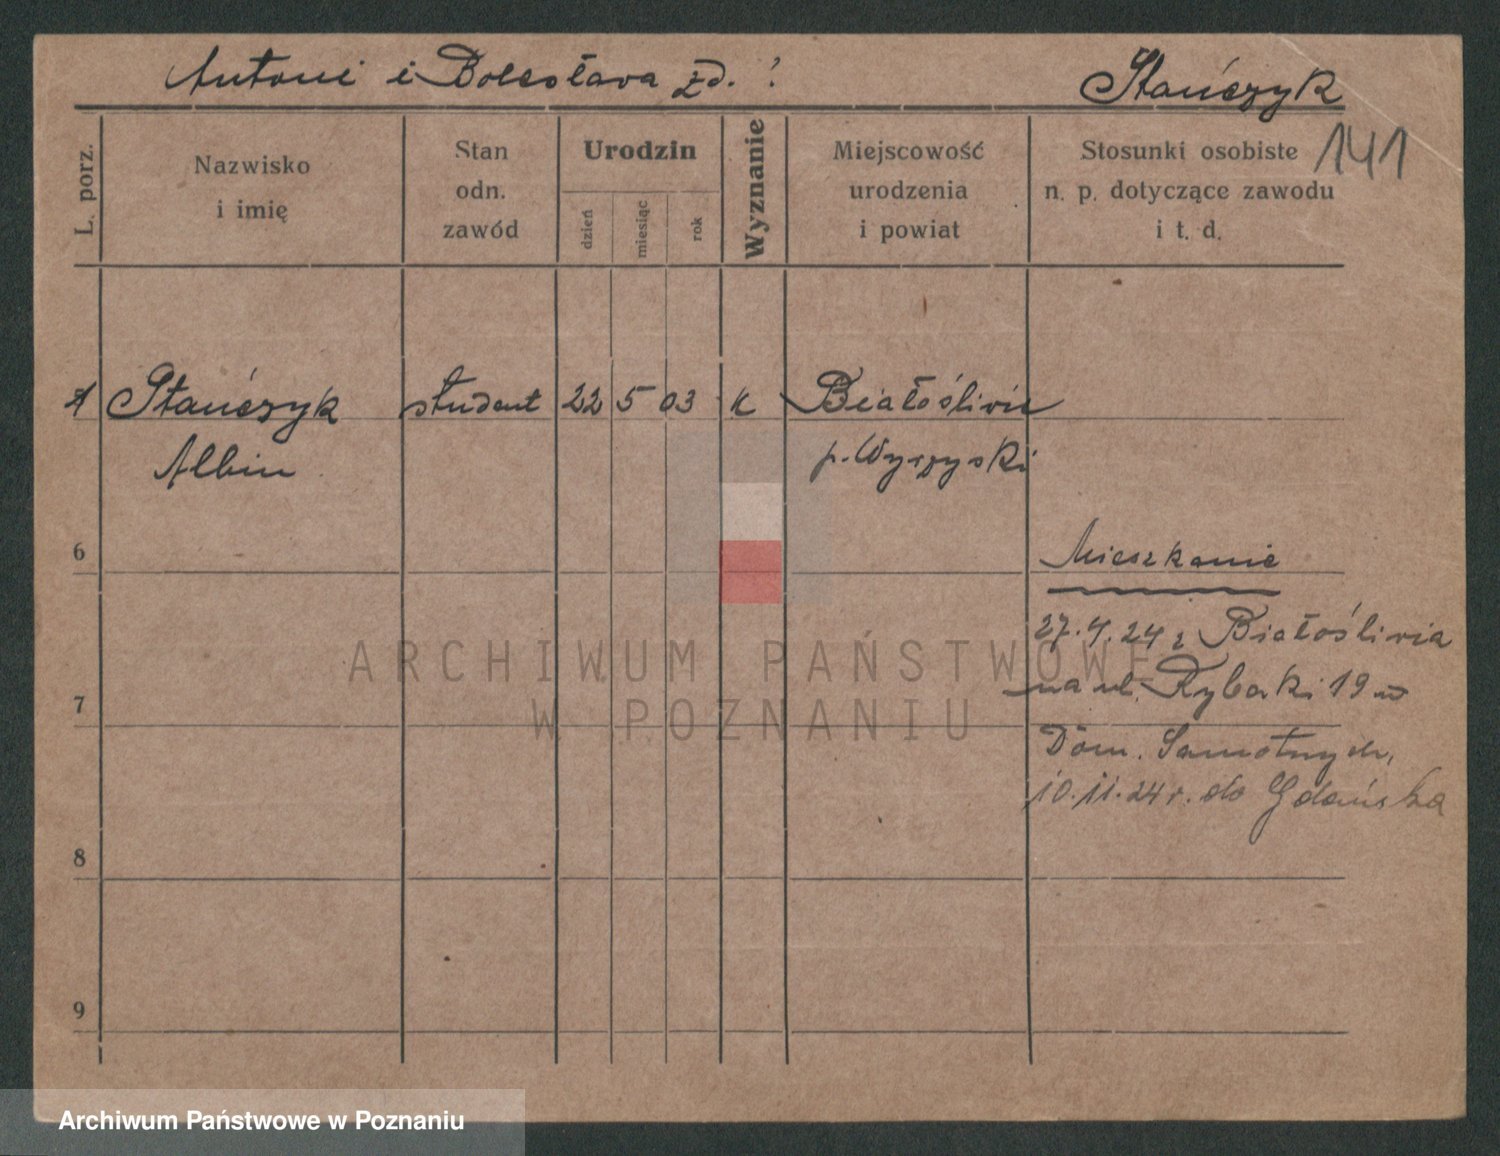 Antoni i Bolesława zd. ? Stańczyk
141
L. porz.
Nazwisko
i imię
Stan
odn.
zawód
Urodzin
dzień
miesiąc
rok
Wyznanie
Miejscowość
urodzenia
i powiat
Stosunki osobiste
n. p. dotyczące zawodu
i t. d.
1 Stańczyk student 22 5 03 k Białośliwie
Albin p. Wyrzyski
6
Mieszkanie
27.4.24 z Białośliwia
na ul. Rybaki 19 w
7
Dom. Samotnych,
10.11.24 r. do Gdańska
8
9
ARCHIWUM PAŃSTWOWE
W POZNANIU
Archiwum Państwowe w Poznaniu